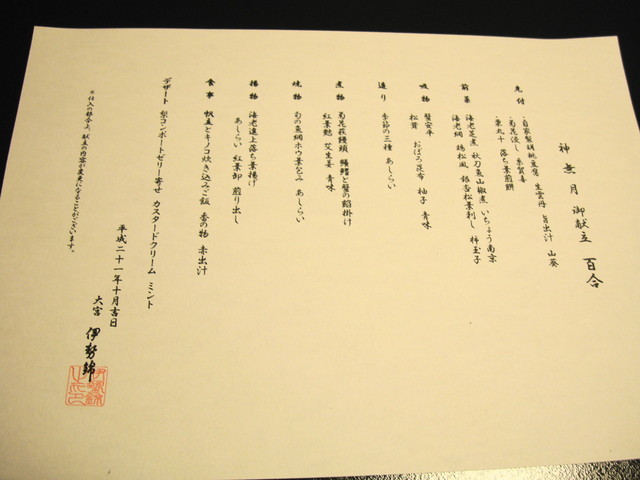 神無月 御献立 百合
先付 自家製胡桃豆腐 生雲丹 旨出汁 山葵
菊花浸し 糸賀喜
栗丸十 落ち葉煎餅
前菜 海老芝煮 秋刀魚山椒煮 いちょう南京
海老網 鶏松風 銀杏松葉刺し 柿玉子
吸物 蟹安平
松茸 おぼろ昆布 柚子 青味
造り 季節の三種 あしらい
煮物 菊花萩饅頭 鱶鰭と蟹の餡掛け
紅葉麩 艾生姜 青味
焼物 旬の魚網ホウ葉包み あしらい
揚物 海老進上落ち葉揚げ
あしらい 紅葉卸 煎り出し
食事 帆立とキノコ炊き込みご飯 香の物 赤出汁
デザート 梨コンポートゼリー寄せ カスタードクリーム ミント
平成二十一年十月吉日
大宮 伊勢錦
＊仕入の都合上、献立の内容が変更になることがございます。